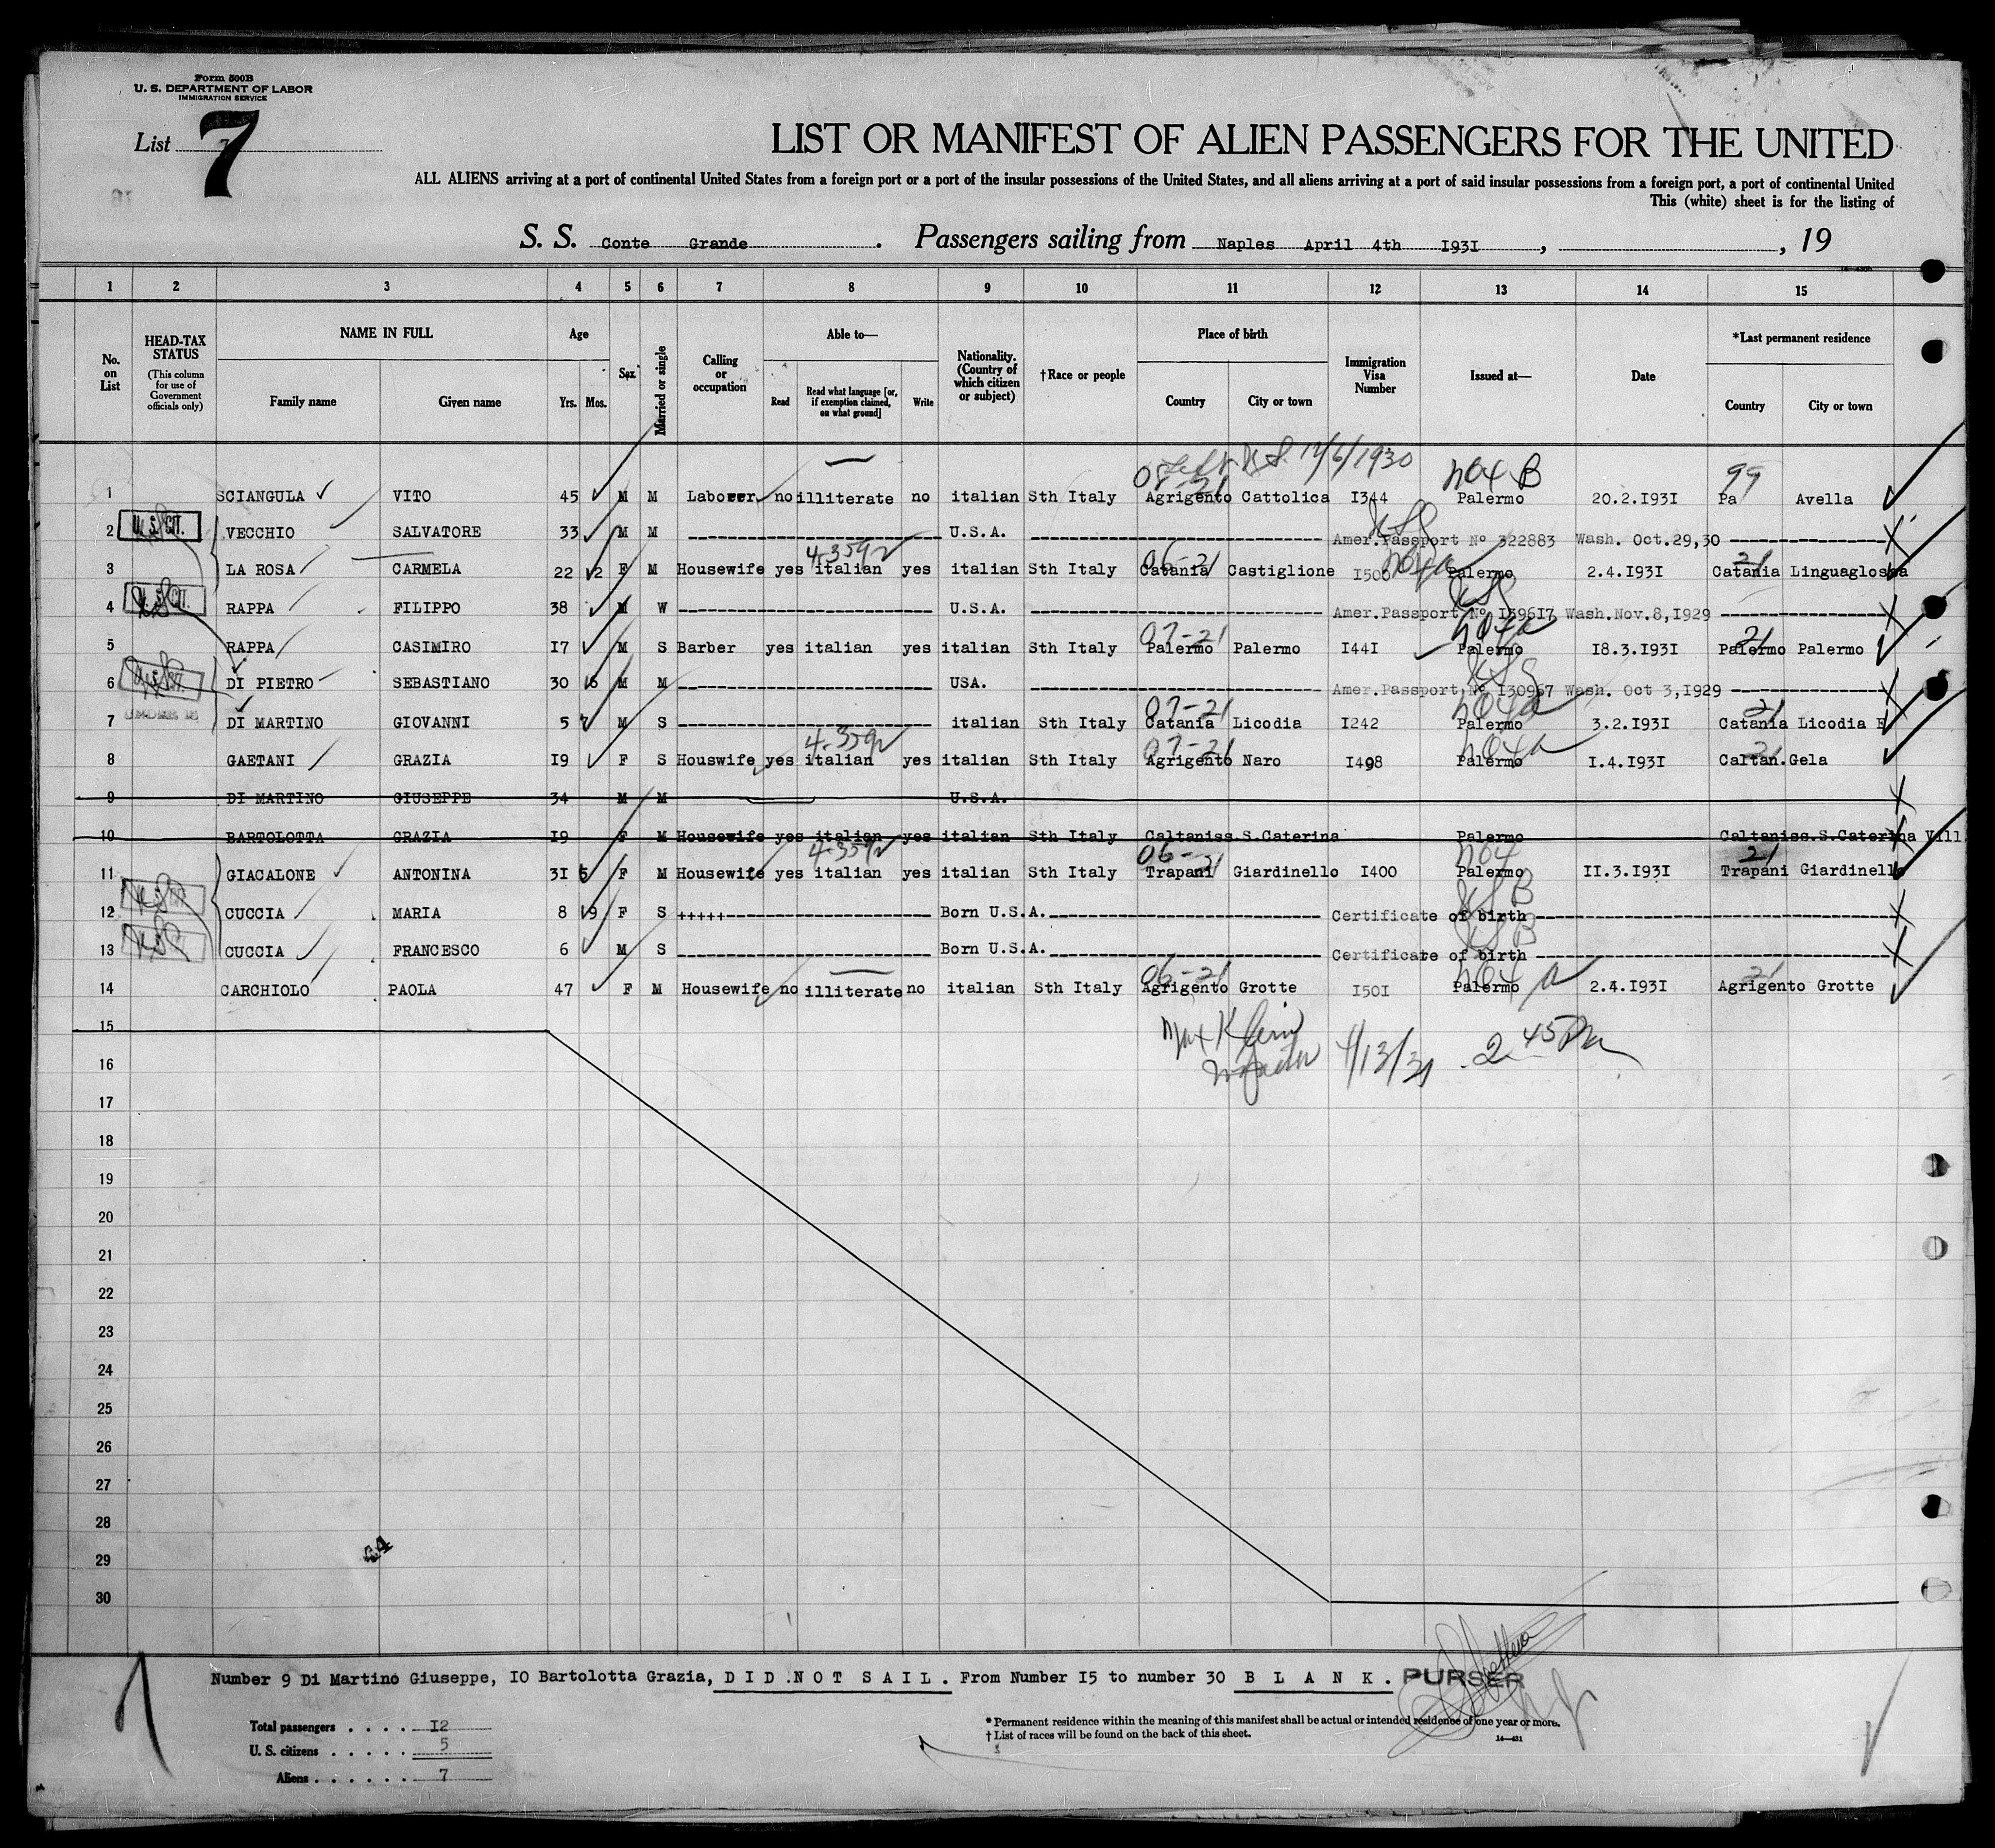 Form 500B
U. S. DEPARTMENT OF LABOR
IMMIGRATION SERVICE
List 7
7
LIST OR MANIFEST OF ALIEN PASSENGERS FOR THE UNITED
ALL ALIENS arriving at a port of continental United States from a foreign port or a port of the insular possessions of the United States, and all aliens arriving at a port of said insular possessions from a foreign port, a port of continental United
This (white) sheet is for the listing of
S. S. Conte Grande . Passengers sailing from Naples April 4th I93I , , 19
1 2 3 4 5 6 7 8 9 10 11 12 13 14 15
No. on List
HEAD-TAX STATUS
(This column for use of Government officials only)
NAME IN FULL
Family name Given name
Age
Yrs. Mos.
Sex
Married or single
Calling or occupation
Able to—
Read
Read what language [or, if exemption claimed, on what ground]
Write
Nationality. (Country of which citizen or subject)
†Race or people
Place of birth
Country City or town
Immigration Visa Number
Issued at—
Date
*Last permanent residence
Country City or town
12/6/1930 99
1 SCIANGULA VITO 45 M M Laborer no illiterate no italian Sth Italy Agrigento Cattolica I344 Palermo 20.2.I93I Pa Avella
2 U.S. CIT. VECCHIO SALVATORE 33 M M U.S.A. Amer.Passport Nº 322883 Wash. Oct.29,30
4-359 06-21 21
3 LA ROSA CARMELA 22 2 F M Housewife yes italian yes italian Sth Italy Catania Castiglione I500 Palermo 2.4.I93I Catania Linguaglossa
4 RAPPA FILIPPO 38 M W U.S.A. Amer.Passport Nº I396I7 Wash.Nov.8,I929
07-21 21
5 RAPPA CASIMIRO I7 M S Barber yes italian yes italian Sth Italy Palermo Palermo I44I Palermo I8.3.I93I Palermo Palermo
6 DI PIETRO SEBASTIANO 30 6 M M USA. Amer.Passport Nº I30967 Wash. Oct 3,I929
07-21 21
7 DI MARTINO GIOVANNI 5 7 M S italian Sth Italy Catania Licodia I242 Palermo 3.2.I93I Catania Licodia E
4-359 07-21 21
8 GAETANI GRAZIA I9 F S Houswife yes italian yes italian Sth Italy Agrigento Naro I498 Palermo I.4.I93I Caltan.Gela
9 DI MARTINO GIUSEPPE 34 M M U.S.A.
10 BARTOLOTTA GRAZIA I9 F M Housewife yes italian yes italian Sth Italy Caltaniss.S.Caterina Palermo Caltaniss.S.Caterina Vill
4-359 06-21 21
11 GIACALONE ANTONINA 3I 5 F M Housewife yes italian yes italian Sth Italy Trapani Giardinello I400 Palermo II.3.I93I Trapani Giardinello
12 CUCCIA MARIA 8 9 F S +++++ Born U.S.A. Certificate of birth
13 CUCCIA FRANCESCO 6 M S Born U.S.A. Certificate of birth
06-21 21
14 CARCHIOLO PAOLA 47 F M Housewife no illiterate no italian Sth Italy Agrigento Grotte I50I Palermo 2.4.I93I Agrigento Grotte
15
Max Klein 4/13/31 2 45 PM
16
17
18
19
20
21
22
23
24
25
26
27
28
44
29
30
Number 9 Di Martino Giuseppe, IO Bartolotta Grazia, D I D N O T S A I L . From Number I5 to number 30 B L A N K . PURSER
Total passengers . . . . I2
U. S. citizens . . . . . 5
Aliens . . . . . . 7
* Permanent residence within the meaning of this manifest shall be actual or intended residence of one year or more.
† List of races will be found on the back of this sheet.
14—431